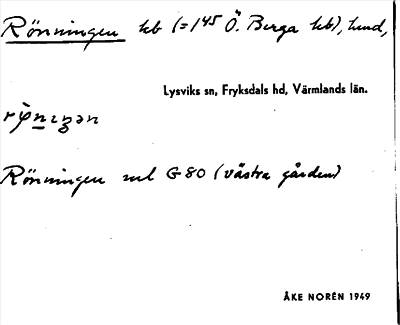 Rönningen hb (= 1/45 Ö. Berga hb), hmd,
Lysviks sn, Fryksdals hd, Värmlands län.
Rönningen ml G 80 (västra gården)
ÅKE NORÉN 1949